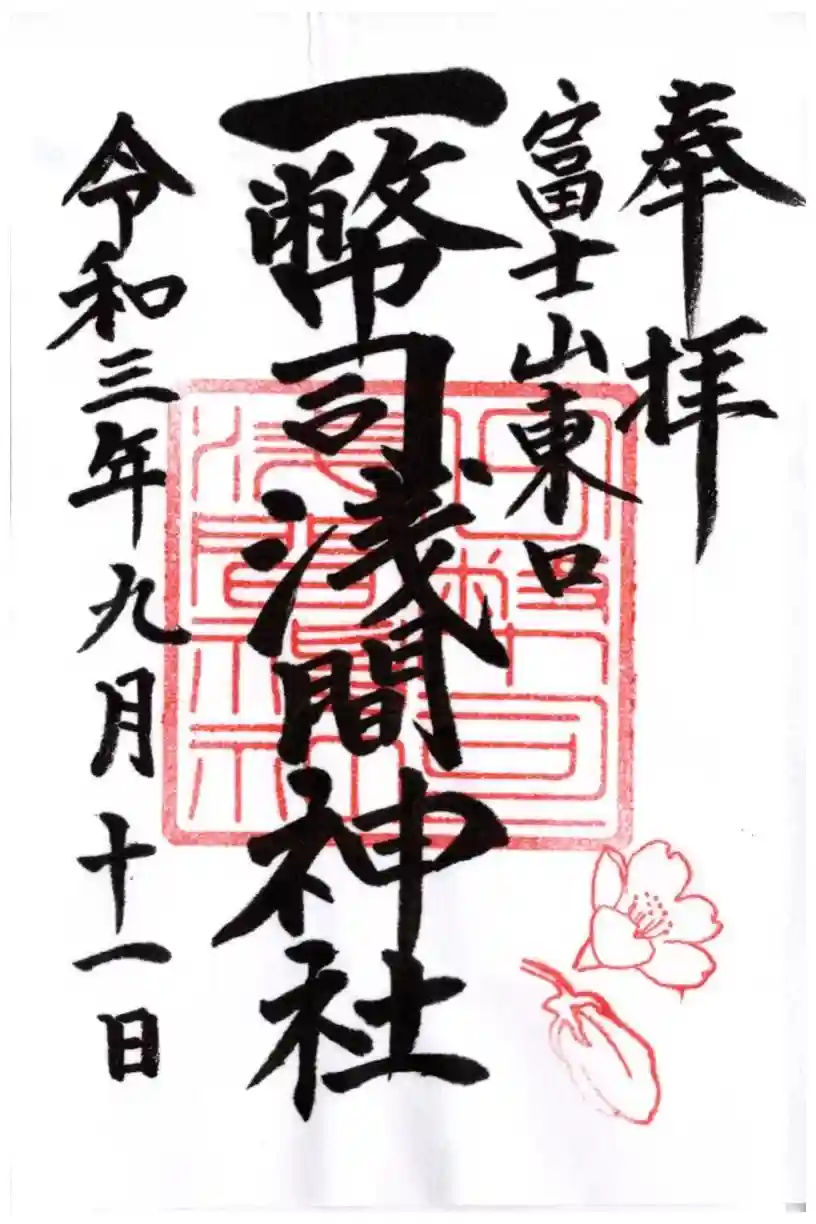 奉拝
富士山東口
一幣司浅間神社
令和三年九月十一日